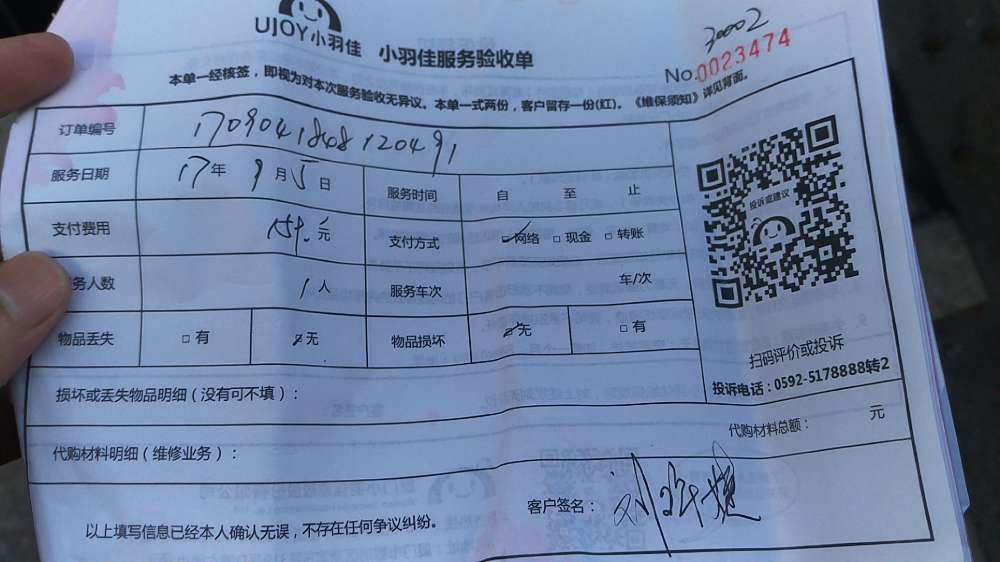 UJOY小羽佳 小羽佳服务验收单
70002
No.0023474
本单一经核签，即视为对本次服务验收无异议。本单一式两份，客户留存一份(红)。《维保须知》详见背面。
订单编号 1709041848120491
服务日期 17年9月5日 服务时间 自 至 止
投诉或建议
支付费用 159.元 支付方式 网络 现金 转账
务人数 1人 服务车次 车/次
物品丢失 有 无 物品损坏 无 有
扫码评价或投诉
投诉电话：0592-5178888转2
损坏或丢失物品明细（没有可不填）：
代购材料明细（维修业务）： 代购材料总额： 元
以上填写信息已经本人确认无误，不存在任何争议纠纷。 客户签名：